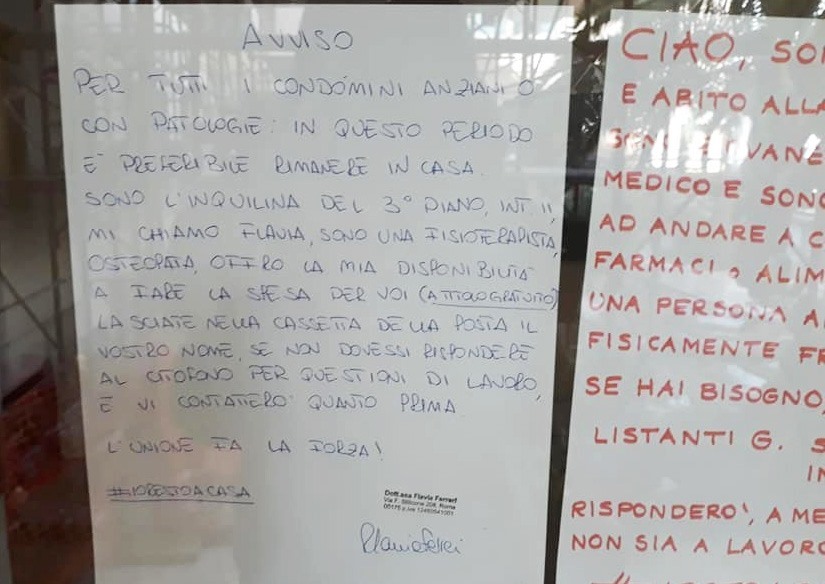 AVVISO
PER TUTTI I CONDOMINI ANZIANI O
CON PATOLOGIE: IN QUESTO PERIODO
E' PREFERIBILE RIMANERE IN CASA.
SONO L'INQUILINA DEL 3° PIANO, INT 11,
MI CHIAMO FLAVIA, SONO UNA FISIOTERAPISTA,
OSTEOPATA, OFFRO LA MIA DISPONIBILITÀ
A FARE LA SPESA PER VOI (A TITOLO GRATUITO)
LASCIATE NELLA CASSETTA DELLA POSTA IL
VOSTRO NOME, SE NON DOVESSI RISPONDERE
AL CITOFONO PER QUESTIONI DI LAVORO,
E VI CONTATTERO' QUANTO PRIMA.
L'UNIONE FA LA FORZA!
#IORESTOACASA
Dott.ssa Flavia Ferreri
Via F. Stilicone 208, Roma
00175 p.iva
CIAO, SO
E ABITO ALLA
MEDICO E SONO
AD ANDARE A C
FARMACI o ALIM
UNA PERSONA A
FISICAMENTE FR
SE HAI BISOGNO,
LISTANTI G. S
IN
RISPONDERO', A ME
NON SIA A LAVORO